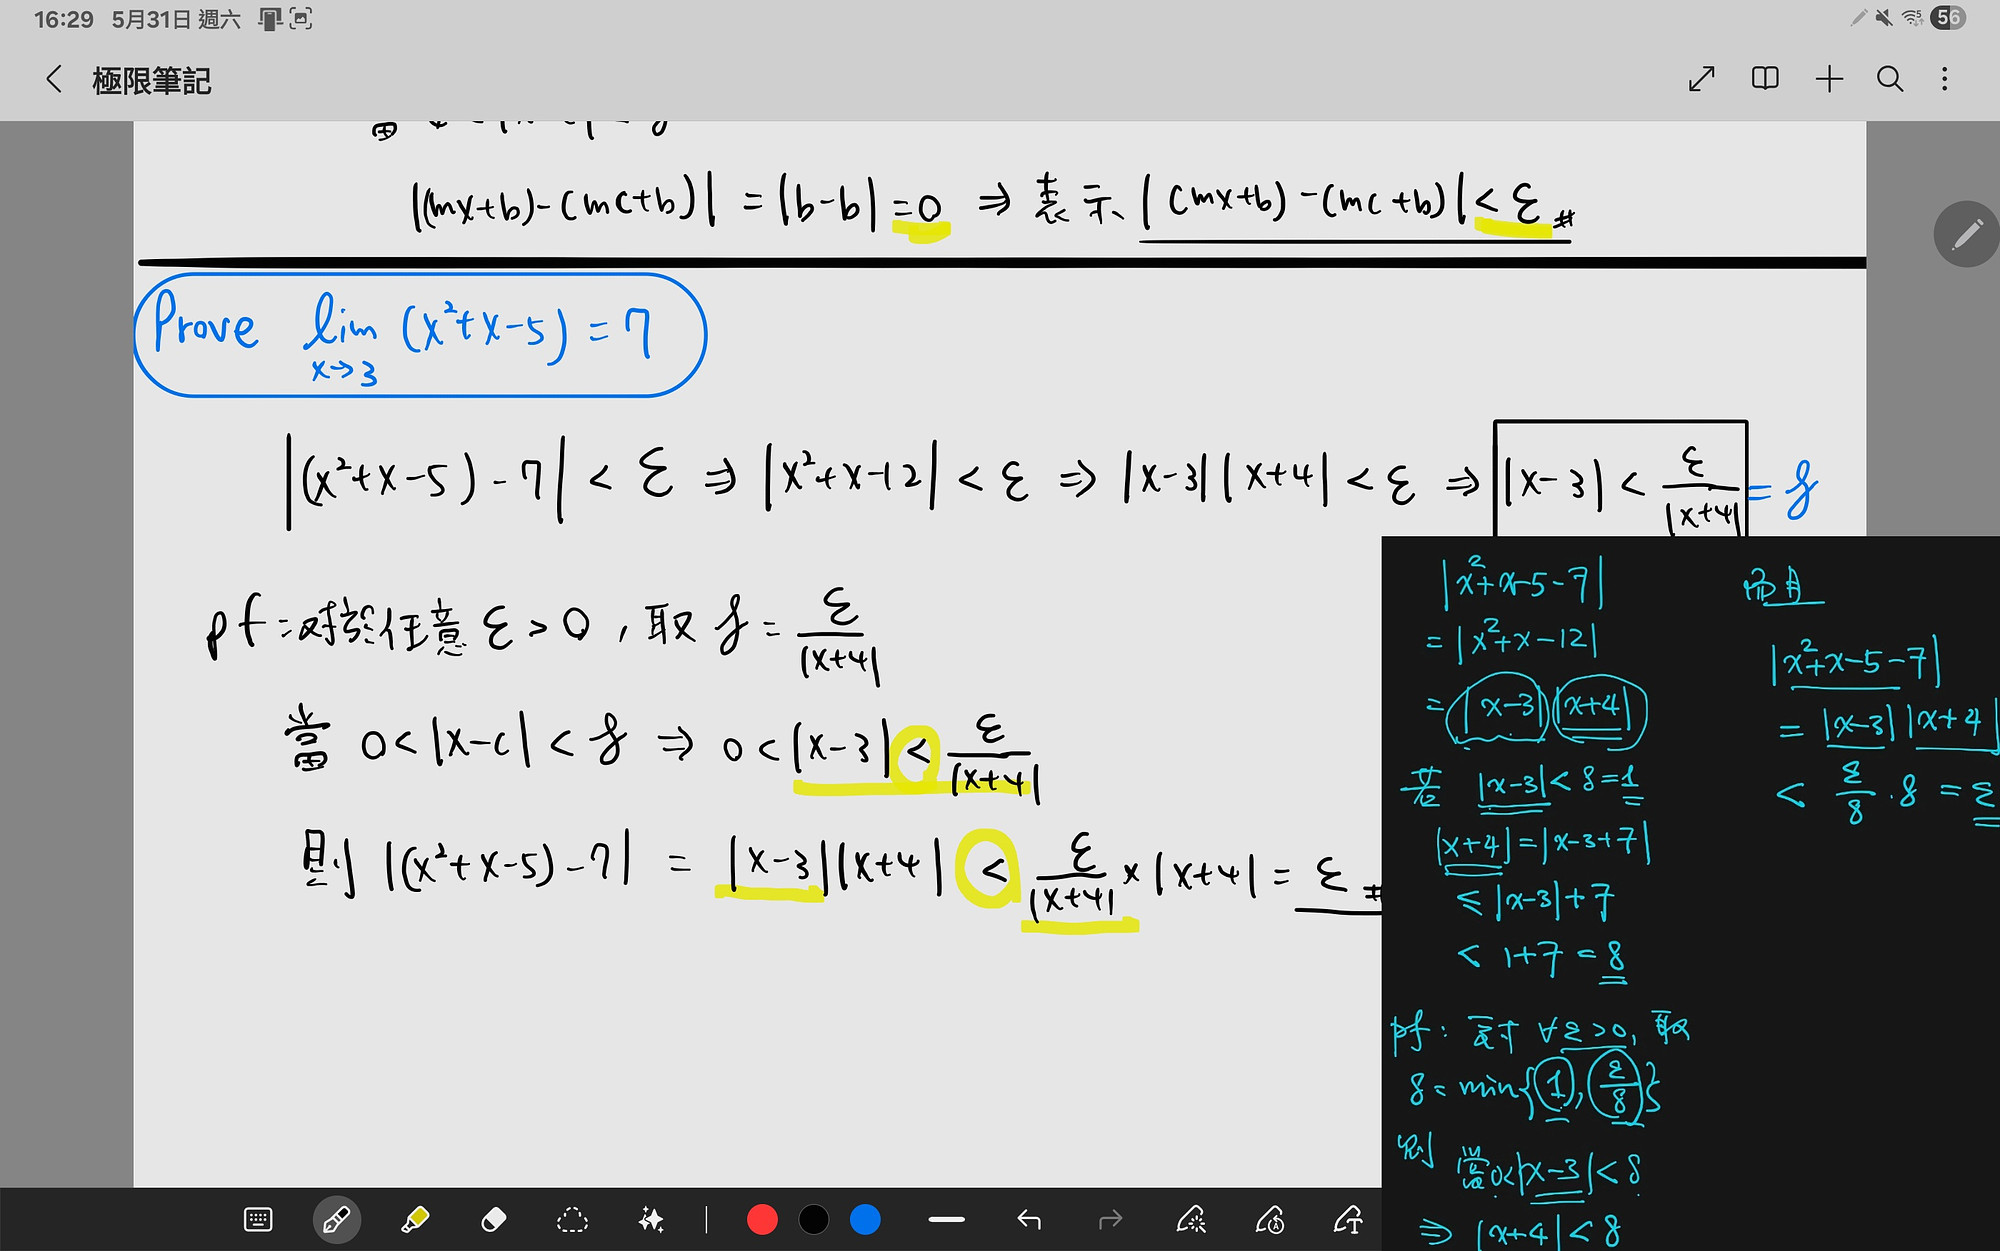 16:29 5月31日 週六 56
極限筆記
|(mx+b)-(mc+b)| = |b-b| =0 ⇒ 表示 |(mx+b)-(mc+b)| < ε #
Prove lim (x²+x-5) = 7
x→3
|(x²+x-5)-7| < ε ⇒ |x²+x-12| < ε ⇒ |x-3||x+4| < ε ⇒ |x-3| < ε/|x+4| = δ
pf:對於任意 ε > 0, 取 δ = ε/|x+4|
當 0<|x-c| < δ ⇒ 0<|x-3| < ε/|x+4|
則 |(x²+x-5)-7| = |x-3||x+4| < ε/|x+4| × |x+4| = ε #
|x²+x-5-7|
= |x²+x-12|
= |x-3||x+4|
若 |x-3| < δ = 1
|x+4| = |x-3+7|
≤ |x-3|+7
< 1+7 = 8
pf: 對 ∀ε>0, 取
δ = min{1, ε/8}
則 當0<|x-3| < δ
⇒ |x+4| < 8
而且
|x²+x-5-7|
= |x-3||x+4|
< ε/8 · 8 = ε